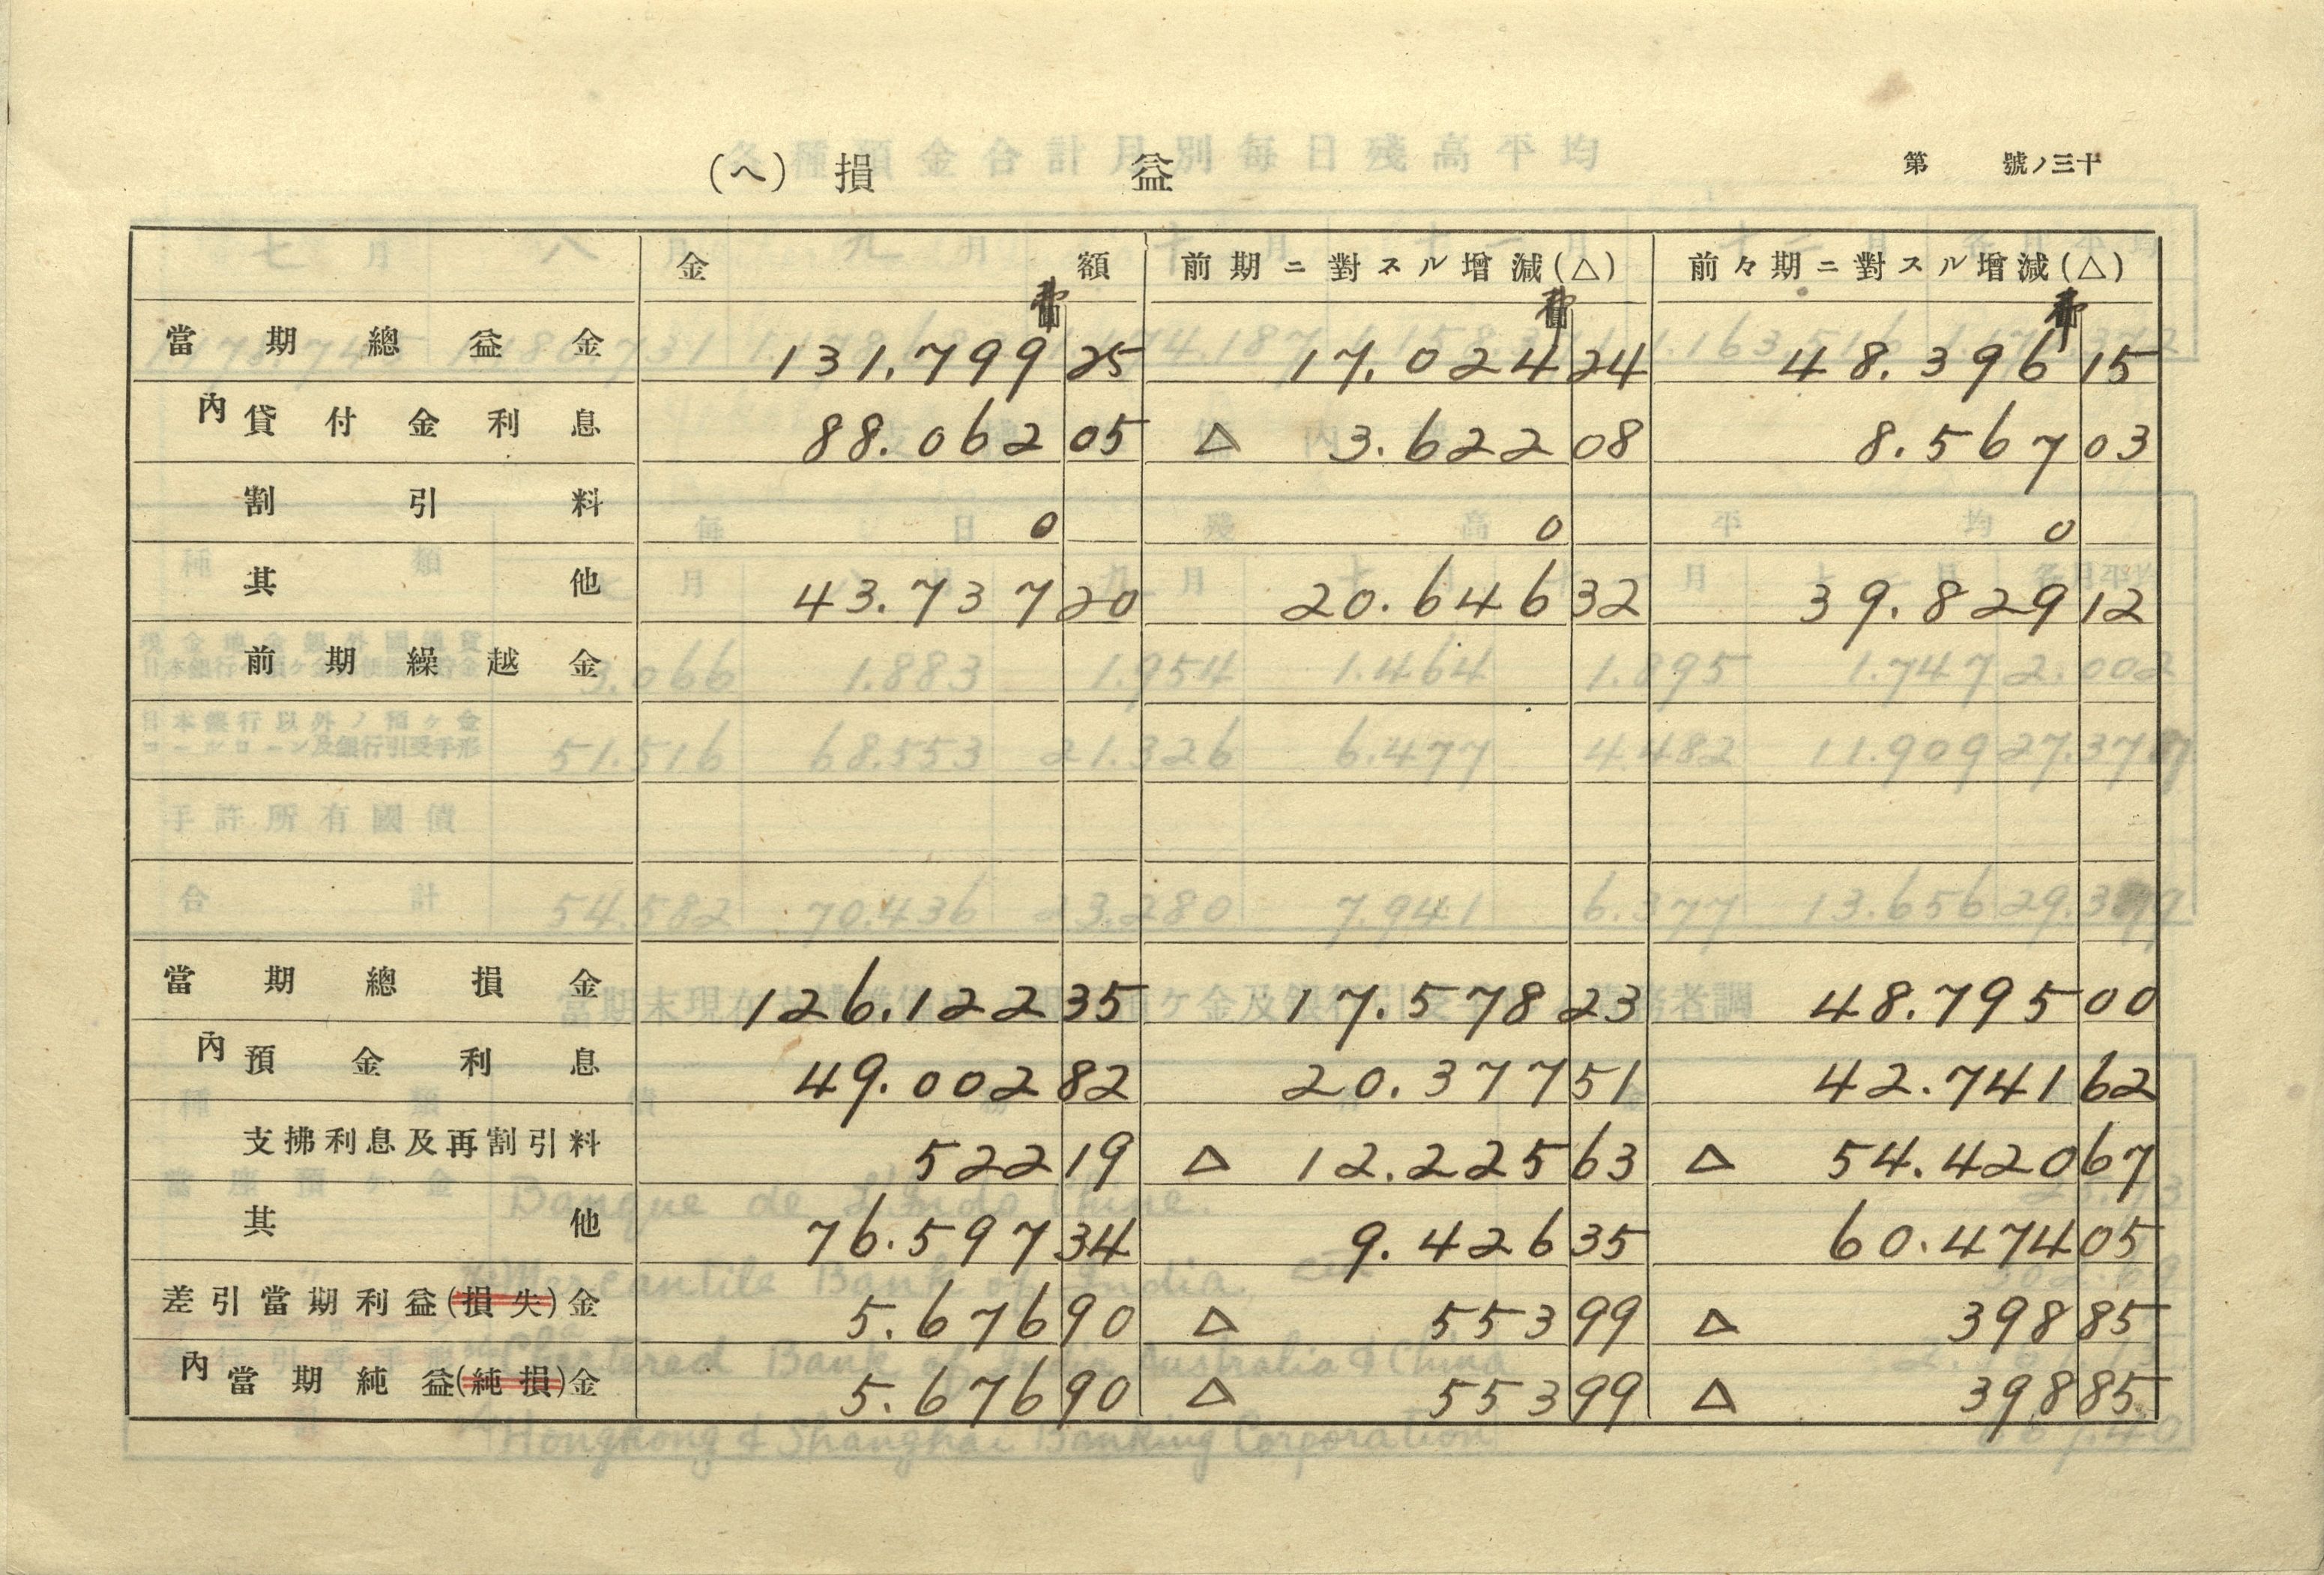 (ヘ) 損 益
第 號ノ三十
金 額 前期ニ對スル增減(△) 前々期ニ對スル增減(△)
當期總益金 131.799 25 17.024 24 48.396 15
內 貸付金利息 88.062 05 △ 3.622 08 8.567 03
割引料 0 0 0
其他 43.737 20 20.646 32 39.829 12
前期繰越金
當期總損金 126.122 35 17.578 23 48.795 00
內 預金利息 49.002 82 20.377 51 42.741 62
支拂利息及再割引料 522 19 △ 12.225 63 △ 54.420 67
其他 76.597 34 9.426 35 60.474 05
差引當期利益(損失)金 5.676 90 △ 553 99 △ 398 85
內 當期純益(純損)金 5.676 90 △ 553 99 △ 398 85